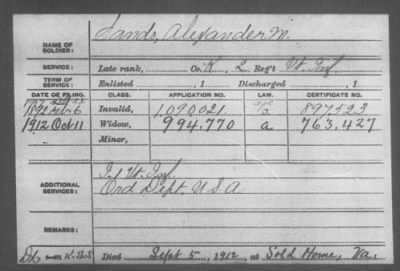 Sands, Alexander M.
NAME OF SOLDIER:
SERVICE: Late rank, Co. K, 2 Reg't Vt. Inf.
TERM OF SERVICE: Enlisted , 1 Discharged , 1
DATE OF FILING. CLASS. APPLICATION NO. LAW. CERTIFICATE NO.
1892 Invalid, 1090021 897523
1912 Oct 11 Widow, 994,770 a 763,427
Minor,
ADDITIONAL SERVICES: Vt. Inf.
Ord Dept. U.S.A
REMARKS:
Died Sept 5, 1912, at Sold Home, Va.